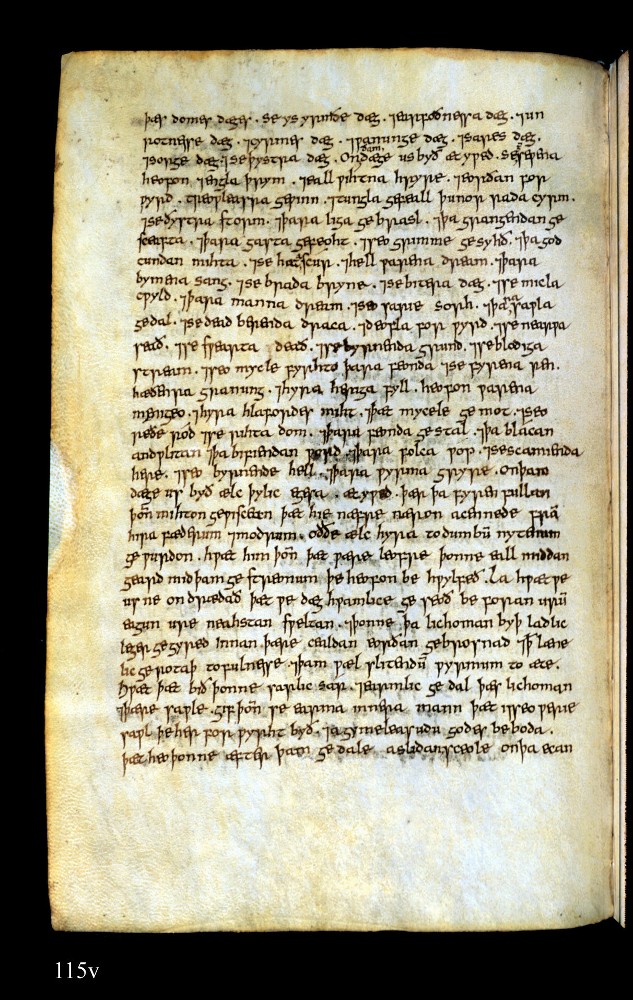 þæs domes dæges . se ys yrmðe dæg . ⁊ earfoðnessa dæg . ⁊ un
rotnesse dæg . ⁊ cyrmes dæg . ⁊ ƿanunge dæg . ⁊ sares dæg .
⁊ sorge dæg . ⁊ se þystra dæg . On dam dæge us byð ætyƿed . seo
heofon ⁊ engla þrym . ⁊ eall ƿihtna hryre . ⁊ eorðan for
ƿyrd . treoƿleasra geƿinn . ⁊ tungla gefeall þunor rada cyrm .
⁊ se ðystra storm . ⁊ þara liga gebrasl . ⁊ þa graniendan ge
sceafta . ⁊ þara gasta gefeoht . ⁊ seo grimme gesyhð . ⁊ þa god
cundan mihta . ⁊ se hata scur . ⁊ hell ƿarena dream . ⁊ þara
bymena sang . ⁊ se brada bryne . ⁊ se bitera dæg . ⁊ se micla
cƿyld . ⁊ þara manna dream . ⁊ seo sarie sorh . ⁊ þara saƿla
gedal . ⁊ se deað berenda draca . ⁊ deofla for ƿyrd . ⁊ se nearƿa
seað . ⁊ se sƿearta deað . ⁊ se byrnenda grund . ⁊ se blodiga
stream . ⁊ seo mycle fyrhto þara feonda ⁊ se fyrena ren .
hæðenra granung . ⁊ hyra heriga fyll . heofon ƿarena
mengeo . ⁊ hyra hlafordes miht . ⁊ þæt mycele ge mot . ⁊ seo
reðe rod ⁊ se rihta dom . ⁊ þara feonda gestal . ⁊ þa blacan
andƿlitan ⁊ þa bifiendan ƿord ⁊ þara folca ƿop . ⁊ se scamienda
here . ⁊ seo byrnende hell . ⁊ þara ƿyrma gryre . On þam
dæge us byð ælc þylic egesa . ætyƿed . þær þa fyrenfullan
þon̄ mihton geƿiscean þæt hie næfre næron acennede fram̄
hira fæderum ⁊ modrum . oððe ælc hyra to dumbū nytenum
ge ƿurdon . hƿæt him þon̄ þæt ƿære leofre þonne eall middan
geard mid þam ge streonum þe heofon be hƿylfeð . La hƿæt ƿe
us ne on drædað þæt ƿe dæg hƿamlice ge seoð be foran urū
eagum ure neahstan sƿeltan . ⁊ þonne þa lichoman byþ ladlic
leger gegyred innan þære cealdan eorðan gebrosnad ⁊ þ̄ læne
lic ge rotaþ to fulnesse ⁊ þam ƿælslitendū ƿyrmum to æte .
Hƿæt þæt bið þonne sarlic sar . ⁊ earmlic ge dal þæs lichoman
⁊ þære saƿle . gif þon̄ se earma innera mann þæt is seo ƿerie
saƿl þe her for ƿyrht byð . ⁊ agymeleasudu godes beboda .
þæt heo þonne æfter þam ge dale aslidan sceole on þa ecan